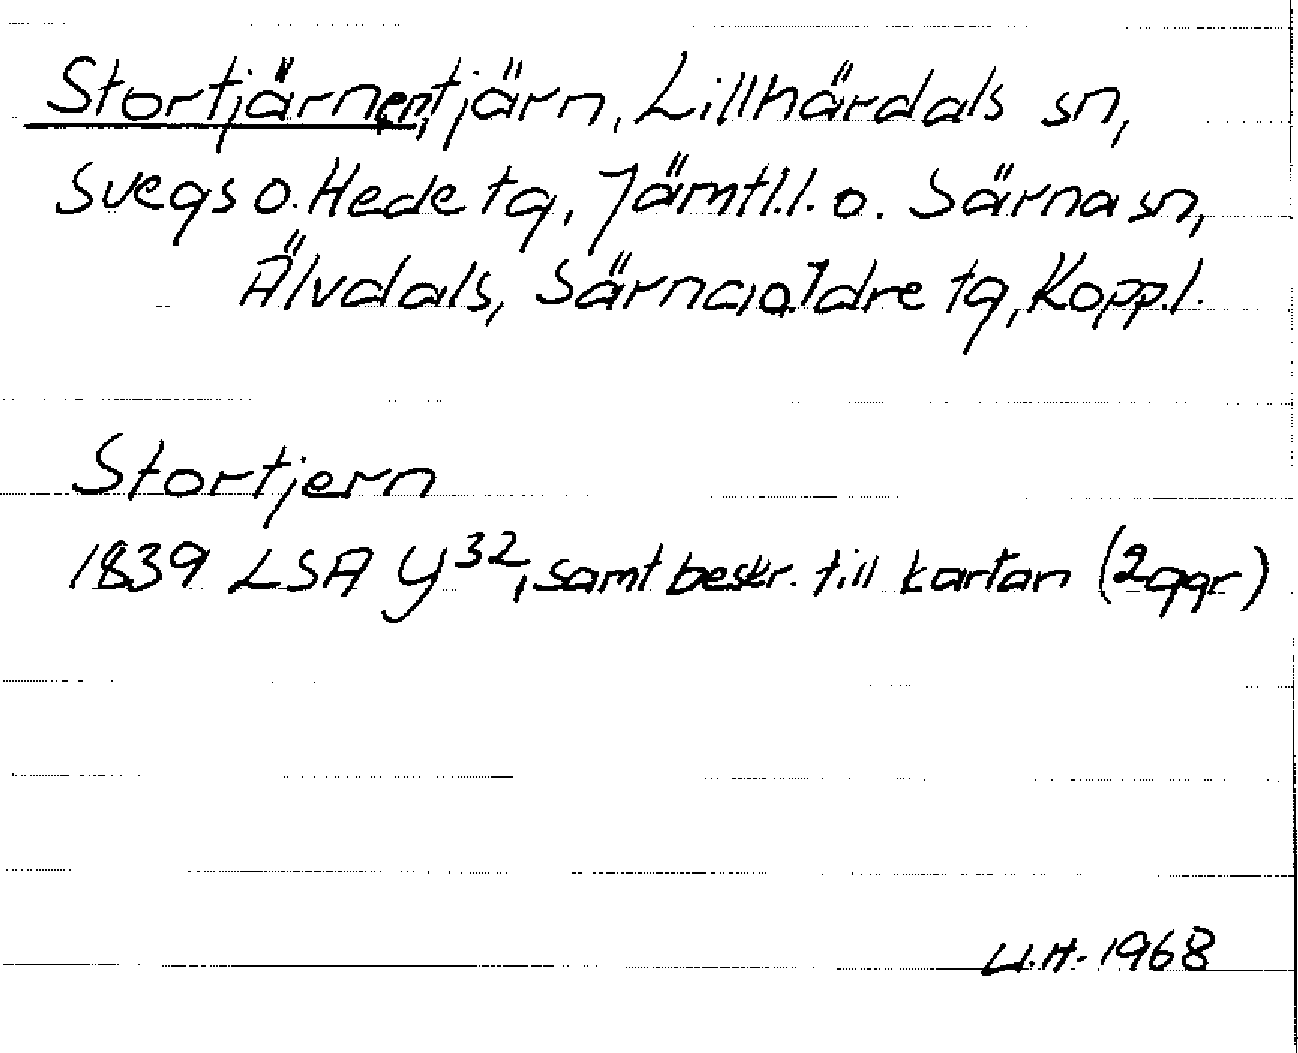 Stortjärnen, tjärn, Lillhärdals sn,
Svegs o. Hede tg, Jämtl.l. o. Särna sn,
Älvdals, Särna o. Idre tg, Kopp.l.
Stortjern
1839 LSA Y32, samt beskr. till kartan (2ggr)
U.H. 1968